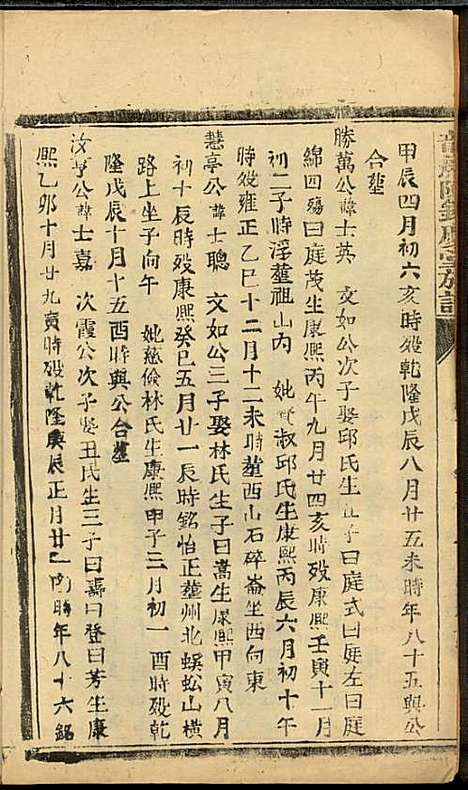 甲辰四月初六亥時歿乾隆戊辰八月廿五未時年八十五與公
合塟
勝萬公諱士英 文如公次子娶邱氏生五子曰庭式曰庭左曰庭
綿四殤曰庭茂生康熙丙午九月廿四亥時歿康熙壬寅十一月
初二子時浮塟祖山內 妣 淑邱氏生康熙丙辰六月初十午
時歿雍正乙巳十二月十二未時塟西山石碎崙坐西向東
慧亭公諱士聰 文如公三子娶林氏生子曰嵩生康熙甲寅八月
初十辰時歿康熙癸巳五月廿一辰時銘怡正塟州北蜈蚣山橫
路上坐子向午 妣慈儉林氏生康熙甲子三月初一酉時歿乾
隆戊辰十月十五酉時與公合塟
汝亨公諱士嘉 次霞公次子娶丑氏生三子曰壽曰登曰芳生康
熙乙卯十月廿九寅時歿乾隆庚辰正月廿 時年八十六銘